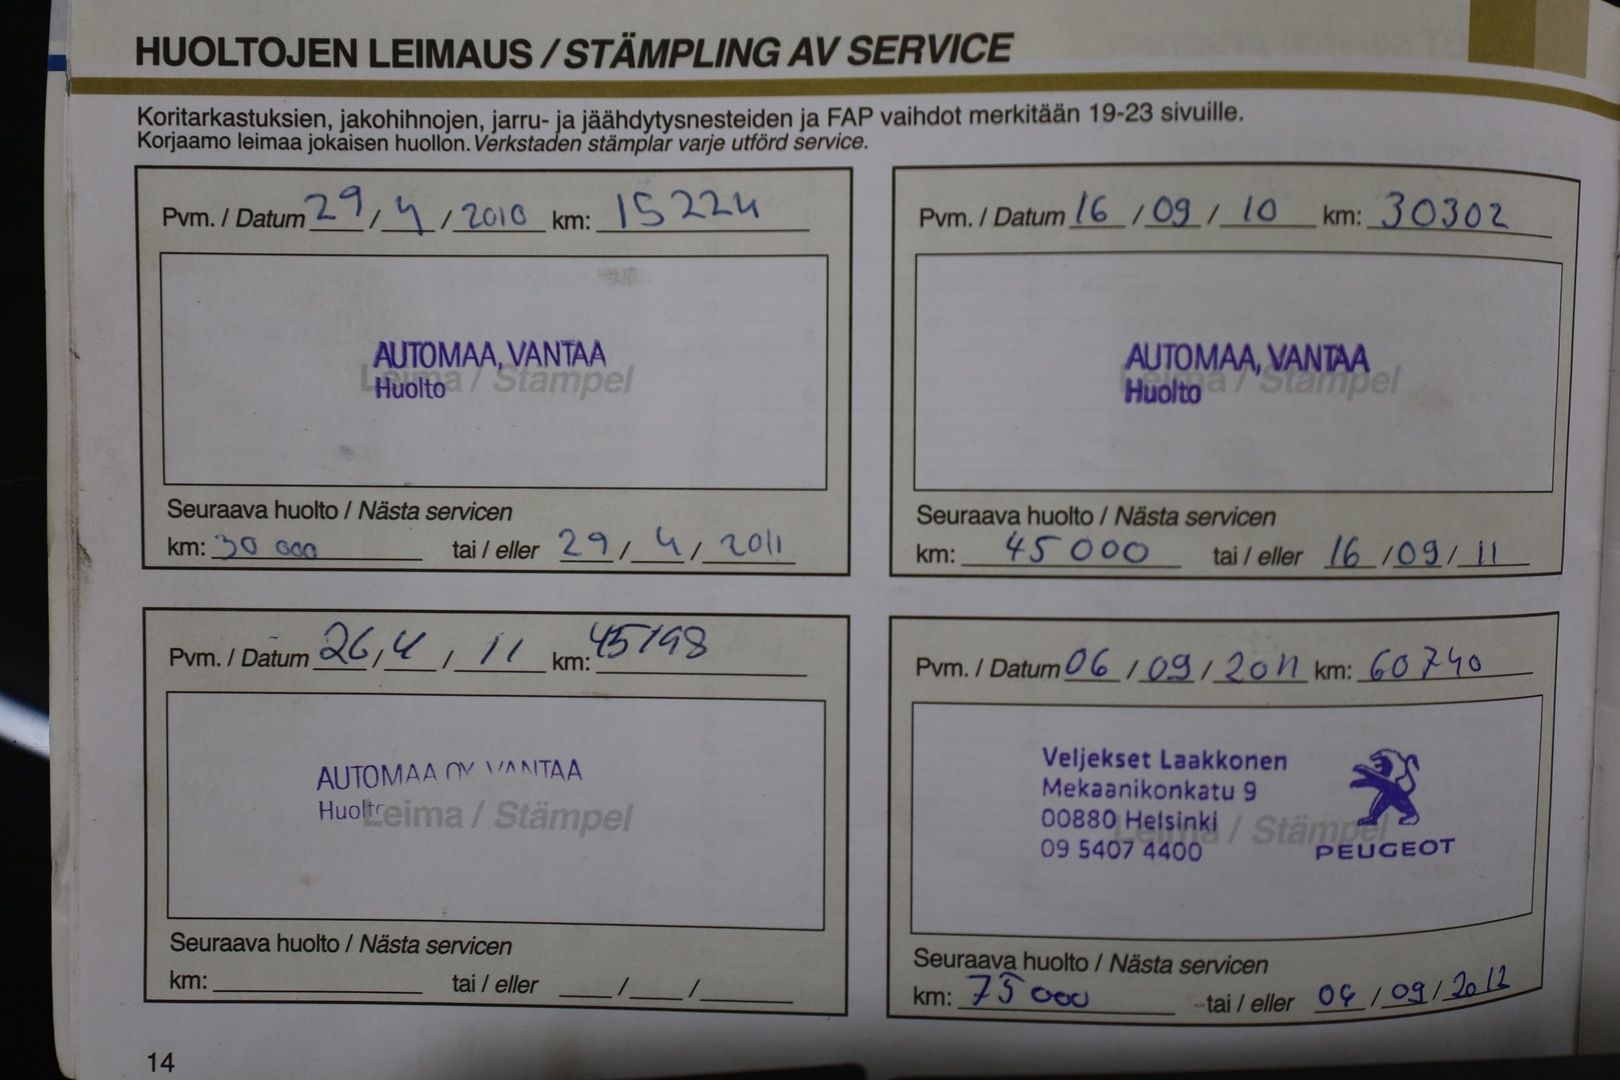 HUOLTOJEN LEIMAUS / STÄMPLING AV SERVICE
Koritarkastuksien, jakohihnojen, jarru- ja jäähdytysnesteiden ja FAP vaihdot merkitään 19-23 sivuille.
Korjaamo leimaa jokaisen huollon. Verkstaden stämplar varje utförd service.
Pvm. / Datum 29 / 4 / 2010 km: 15224
Leima / Stämpel
AUTOMAA, VANTAA
Huolto
Seuraava huolto / Nästa servicen
km: 30 000 tai / eller 29 / 4 / 2011
Pvm. / Datum 16 / 09 / 10 km: 30302
Leima / Stämpel
AUTOMAA, VANTAA
Huolto
Seuraava huolto / Nästa servicen
km: 45 000 tai / eller 16 / 09 / 11
Pvm. / Datum 26 / 4 / 11 km: 45198
AUTOMAA OY VANTAA
Huolto
Leima / Stämpel
Seuraava huolto / Nästa servicen
km: tai / eller / /
Pvm. / Datum 06 / 09 / 2011 km: 60740
Veljekset Laakkonen
Mekaanikonkatu 9
00880 Helsinki
09 5407 4400
PEUGEOT
Leima / Stämpel
Seuraava huolto / Nästa servicen
km: 75 000 tai / eller 06 / 09 / 2012
14